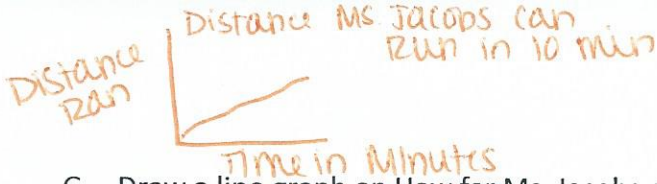 Distance Ms. Jacobs can
Run in 10 min
Distance
Ran
Time in Minutes